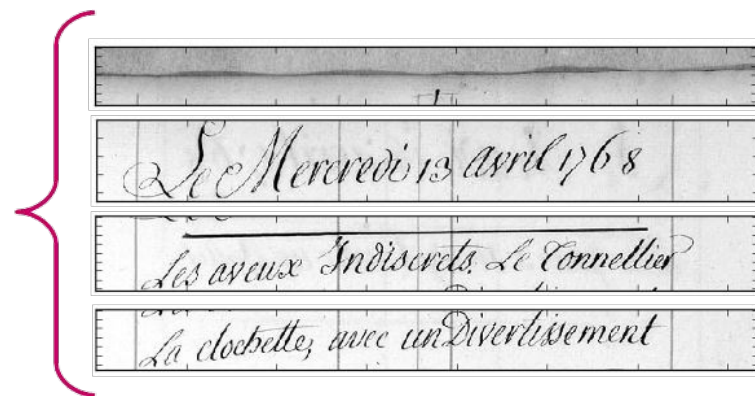 Le Mercredi 13 avril 1768
Les aveux Indiscrets. Le Tonnellier
La clochette, avec un Divertissement